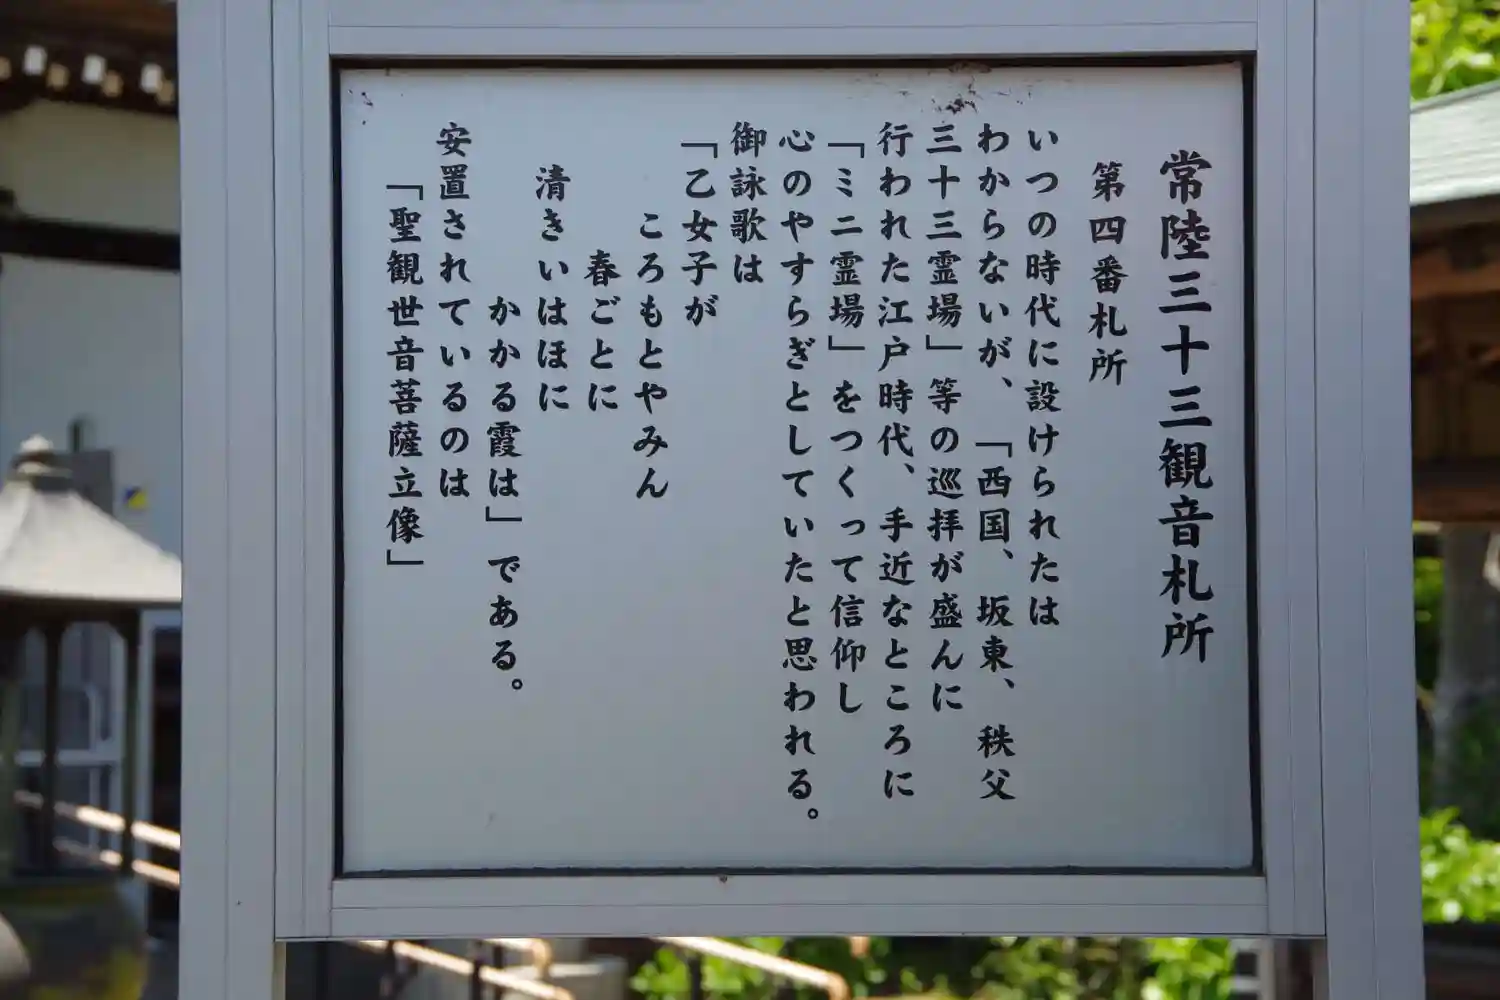 常陸三十三観音札所
第四番札所
いつの時代に設けられたは
わからないが、「西国、坂東、秩父
三十三霊場」等の巡拝が盛んに
行われた江戸時代、手近なところに
「ミニ霊場」をつくって信仰し
心のやすらぎとしていたと思われる。
御詠歌は
「乙女子が
ころもとやみん
春ごとに
清きいはほに
かかる霞は」である。
安置されているのは
「聖観世音菩薩立像」